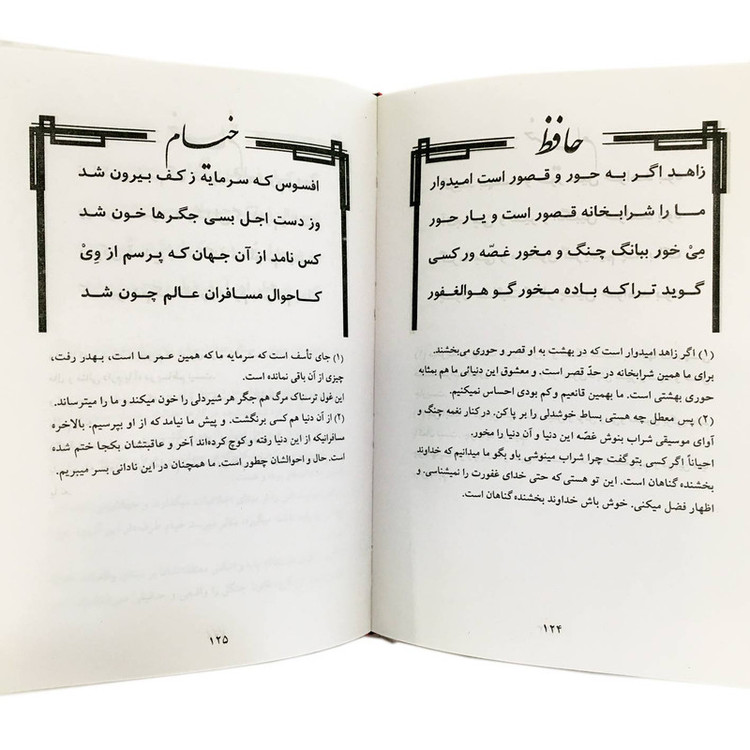 حافظ
زاهد اگر به حور و قصور است امیدوار
ما را شرابخانه قصور است و یار حور
مِیْ خور ببانگ چنگ و مخور غصّه ور کسی
گوید ترا که باده مخور گو هوالغفور
(۱) اگر زاهد امیدوار است که در بهشت به او قصر و حوری می‌بخشند.
برای ما همین شرابخانه در حدّ قصر است. و معشوق این دنیائی ما هم بمثابه
حوری بهشتی است. ما بهمین قانعیم و کم بودی احساس نمیکنیم.
(۲) پس معطل چه هستی بساط خوشدلی را پر پا کن. در کنار نغمه چنگ و
آوای موسیقی شراب بنوش غصّه این دنیا و آن دنیا را مخور.
احیاناً اگر کسی بتو گفت چرا شراب مینوشی باو بگو ما میدانیم که خداوند
بخشنده گناهان است. این تو هستی که حتی خدای غفورت را نمیشناسی. و
اظهار فضل میکنی. خوش باش خداوند بخشنده گناهان است.
۱۲۴
خیام
افسوس که سرمایهٔ ز کف بیرون شد
وز دست اجل بسی جگرها خون شد
کس نامد از آن جهان که پرسم از وِیْ
کاحوال مسافران عالم چون شد
(۱) جای تأسف است که سرمایه ما که همین عمر ما است، بهدر رفت،
چیزی از آن باقی نمانده است.
این غول ترسناک مرگ هم جگر هر شیردلی را خون میکند و ما را میترساند.
(۲) از آن دنیا هم کسی برنگشت. و پیش ما نیامد که از او بپرسیم. بالاخره
مسافرانیکه از این دنیا رفته و کوچ کرده‌اند آخر و عاقبتشان بکجا ختم شده
است. حال و احوالشان چطور است. ما همچنان در این نادانی بسر میبریم.
۱۲۵